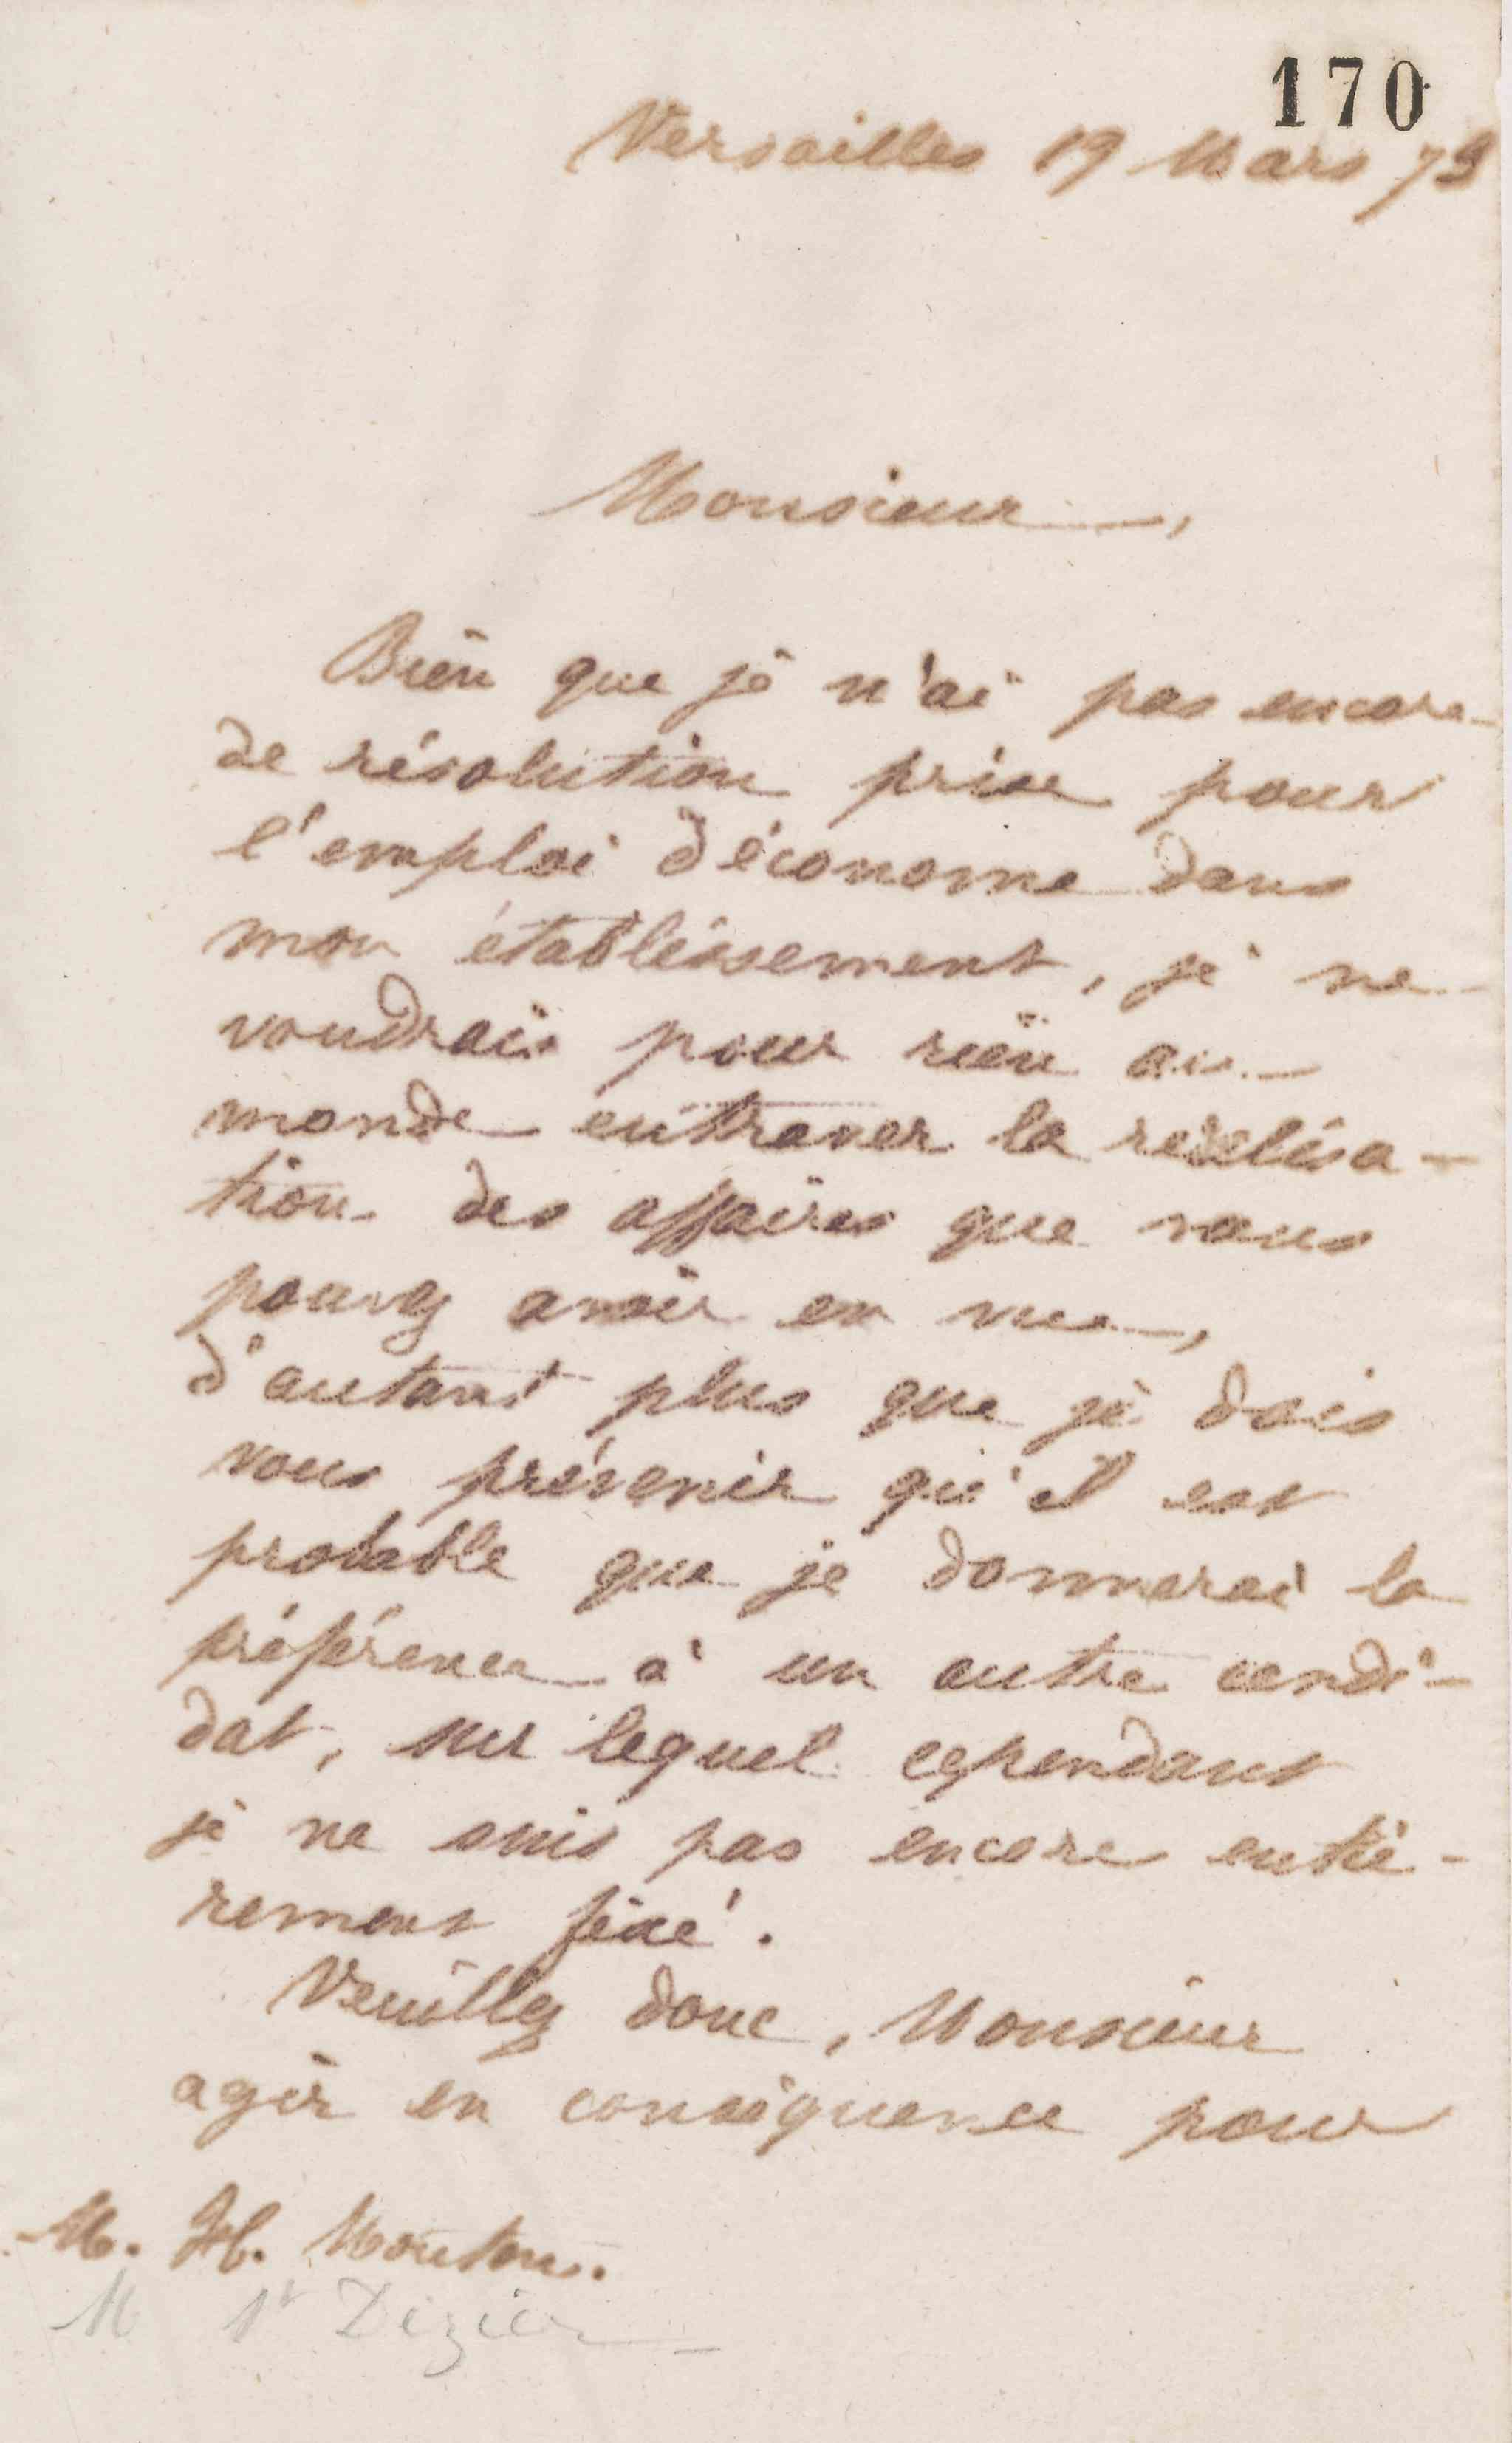 170
Versailles 19 Mars 73
Monsieur,
Bien que je n'ai pas encore
de résolution prise pour
l'emploi d'économe dans
mon établissement, je ne
voudrais pour rien au
monde entraver la réalisa-
tion des affaires que vous
pouvez avoir en vue,
d'autant plus que je dois
vous prévenir qu'il est
probable que je donnerai la
préférence à un autre candi-
dat, sur lequel cependant
je ne suis pas encore entiè-
rement fixé.
Veuillez donc, Monsieur
agir en conséquence pour
M. H. Mouton.
M St Dizier